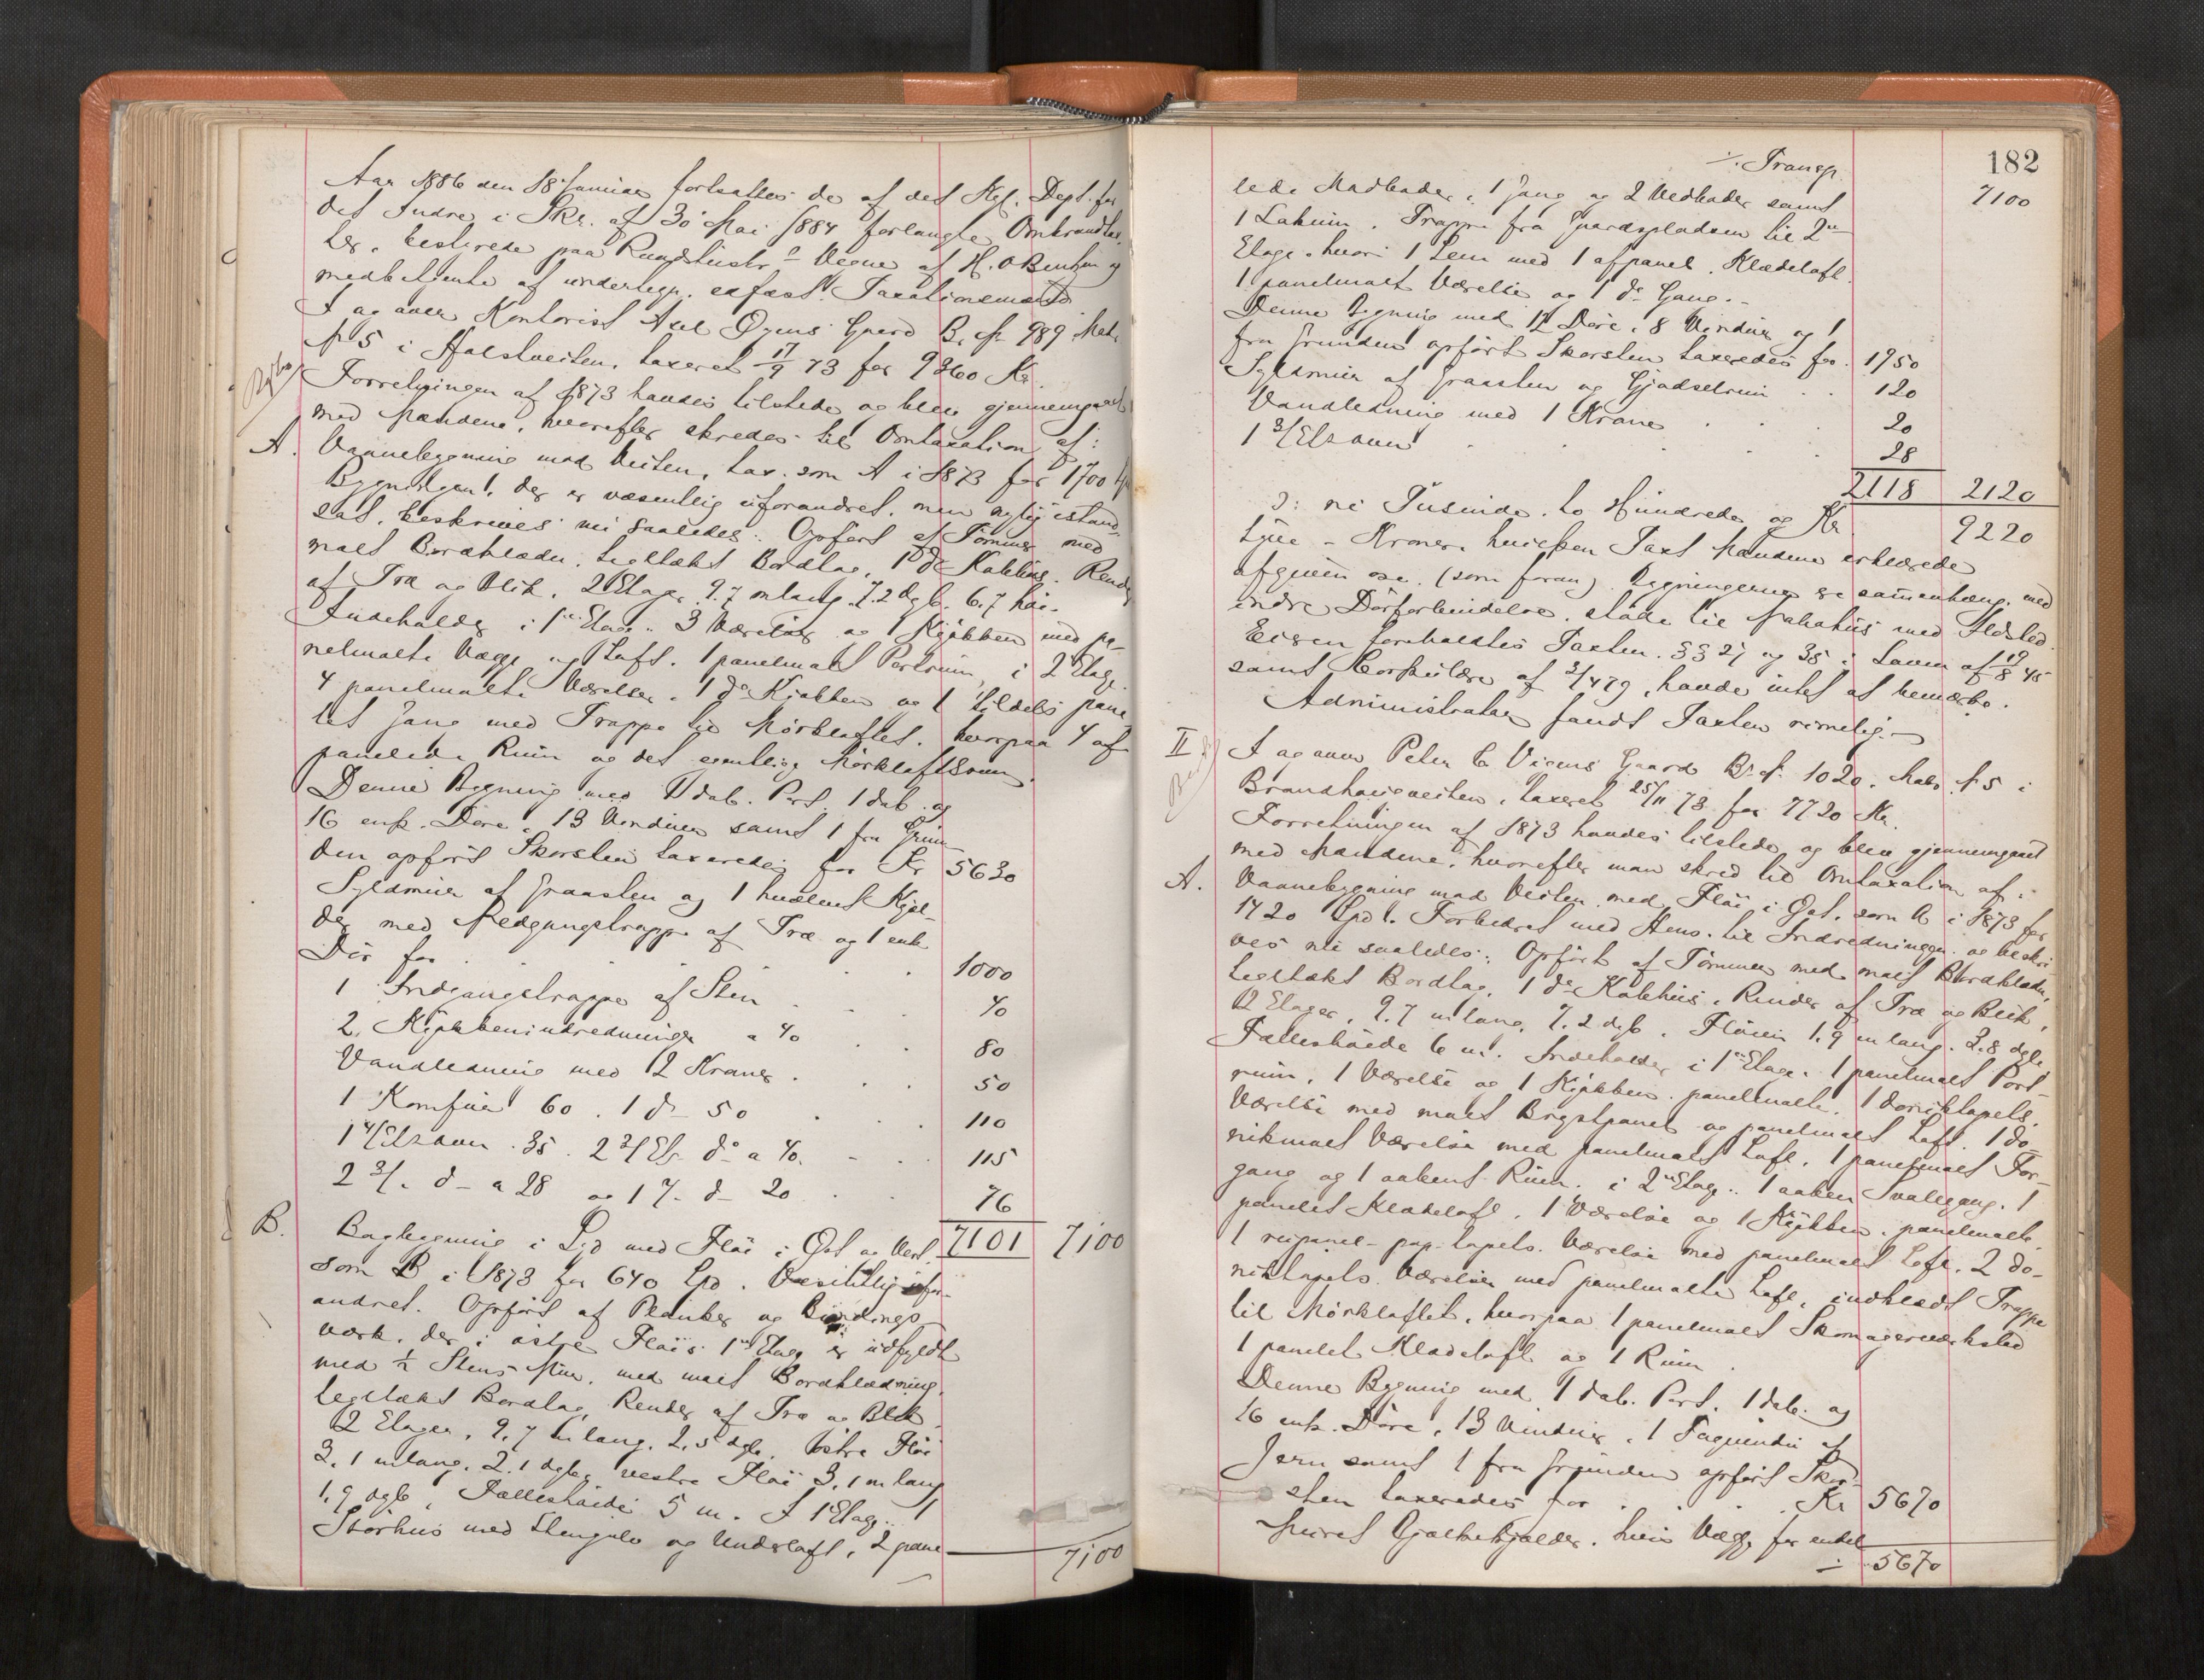 Aar 1886 den 18 Januar fortsattes de af det Kgl. Dept. for
det Indre i Skr. af 30 Mai 1884 forlangte Ombrandtax
ter, bestyrede paa Raadstustr.s Vegne af H. O Bentzen og
medbetjente af undertegn. edfæst. Taxationsmænd
I ag over Kontorist Axel Øyens Gaard B. № 989 Matr.
№ 5 i Holstveiten, taxeret 17/9 73 for 9360 Kr.
Forretningen af 1873 havdes tilstede og blev gjennemgaaet
med Mændene, hvorefter skredes til Omtaxation af:
A. Vaanebygning mod Veiten, tax. som A i 1873 for 1700 Spd
Bygningen, der er væsentlig uforandret, men nylig istand-
sat, beskrives nu saaledes: Opført af Tømmer med
malt Bordklædn, tegltækt Bordtag, 1 do Kobbhus. Render
af Træ og Blik, 2 Etager, 9.7 m lang, 7.2 dyb, 6.7 høi.
Indeholder i 1ste Etage: 3 Værelser og 1 Kjøkken med pa-
nelmalte Vægge og Loft, 1 panelmalt Portrum, i 2 Etage
4 panelmalte Værelser, 1 do Kjøkken og 1 tildels pane
let Gang med Trappe til Mørkloftet, hvorpaa 4 af-
panelede Rum og det egentlige Mørkloftsrum.
Denne Bygning med 1 dob. Port, 1 dob. og
16 enk. Døre, 13 Vinduer samt 1 fra Grun-
den opført Skorsten taxeredes for Kr 5630
Syldmur af Graasten og 1 hvælvet Kjæl-
der med Nedgangstrappe af Træ og 1 enk
Dør for . . . . 1000
1 Indgangstrappe af Sten . . 40
2 Kjøkkenindredninger a 40 . . 80
Vandledning med 2 Kraner . . . 50
1 Komfur 60. 1 do 50 . . . 110
1 4/Etsovn 35. 2 3/Ets do a 40. . . 115
2 3/- do a 28 og 1 2/- do 20 . . 76
7101 7100
B. Bagbygning i Syd med Fløi i Øst og Vest,
som B i 1873 for 640 Spd. Væsentlig ufor-
andret. Opført af Planker og Bindings-
værk, der i østre Fløis 1ste Etage er udfyldt
med 1/2 Stens Mur, med malt Bordklædning,
tegltækt Bordtag, Render af Træ og Blik
2 Etager, 9.7 m lang, 2.5 dyb, østre Fløi
3.1 m lang, 2.1 dyb, vestre Fløi 3.1 m lang
1.9 dyb, Fælleshøide 5 m. I 1 Etage: 1
Storhus med Stengulv og Underloft, 2 pane-
7100
182
·/. Transp. 7100
lede Madboder, 1 Gang og 2 Vedboder samt
1 Lokum. Trappe fra Gaardspladsen til 2den
Etage, hvori 1 Lem med 1 afpanel. Klædeloft
1 panelmalt Værelse og 1 do Gang. -
Denne Bygning med 12 Døre, 8 Vinduer og 1
fra Grunden opført Skorsten taxeredes for. 1950
Syldmur af Graasten og Gjødselrum . . 120
Vandledning med 1 Krane . . . 20
1 3/Etsovn . . . . 28
2118 2120
ɔ: ni Tusinde, to Hundrede og Kr 9220
tyve - Kroner, hvilken Taxt Mændene erklærede
afgiven osv. (som foran). Bygningerne er sammenhæng. med
indre Dørforbindelse, stöde til Nabohus med Ildsted.
Eieren foreholdtes Taxten, §§ 27 og 38 i Loven af 19/8 45
samt Cirkulære af 3/4 79, havde intet at bemærke.
Administrator fandt Taxten rimelig. -
II I ag over Peter C Viguns Gaard B. № 1020. Matr. № 5 i
Brandhaugveiten, taxeret 25/11 73 for 7720 Kr.
Forretningen af 1873 havdes tilstede og blev gjennemgaaet
med Mændene, hvorefter man skred til Omtaxation af:
A. Vaanebygning mod Veiten med Fløi i Øst, som A i 1873 for
1420 Spd. Forbedret med Hens. til Indredningen og beskri-
ves nu saaledes: Opført af Tømmer med malt Bordklædn,
tegltækt Bordtag, 1 do Kobhus, Render af Træ og Blik,
2 Etager, 9.7 m lang, 7.2 dyb, Fløien 1.9 m lang, 2.8 dyb,
Fælleshøide 6 m. Indeholder i 1ste Etage: 1 panelmalt Port-
rum, 1 Værelse og 1 Kjøkken, panelmalte, 1 doniktapets.
Værelse med malt Brystpanel og panelmalt Loft, 1 do-
nikmalt Værelse med panelmalt Loft, 1 panelmalt For-
gang og 1 aabent Rum, i 2den Etage: 1 aaben Svalegang, 1
panelet Klædeloft, 1 Værelse og 1 Kjøkken, panelmalte,
1 rupanel- pap-tapets. Værelse med panelmalt Loft, 2 do-
niktapets. Værelser med panelmalte Loft, indklædt Trappe
til Mørkloftet, hvorpaa 1 panelmalt Skomagerværksted
1 panelet Klædeloft og 1 Rum.
Denne Bygning med 1 dob. Port, 1 dob. og
16 enk. Døre, 13 Vinduer, 1 Tagvindu af
Jern samt 1 fra Grunden opført Skor-
sten taxeredes for . . . . Kr 5670
Muret Hvælvkjælder, hvis Vægge for endel
·/. 5670